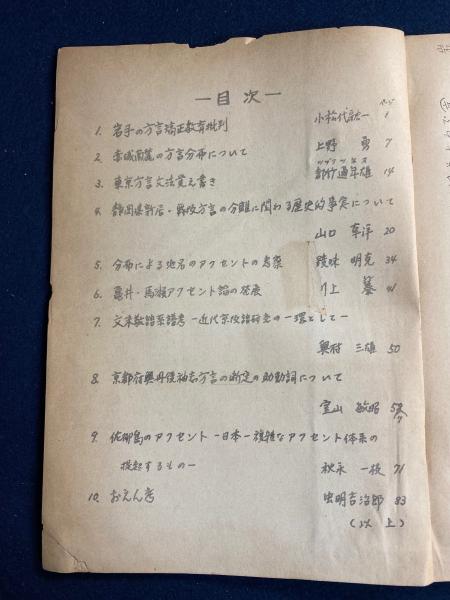 －目次－
ページ
1. 岩手の方言矯正教育批判 小松代融一 1
2. 赤城南麓の方言分布について 上野 勇 7
ツヅクツネオ
3. 東京方言文法覚え書き 都竹通年雄 14
4. 静岡県新居・舞阪方言の分離に関わる歴史的事実について
山口 幸洋 20
5. 分布による地名のアクセントの考察 鏡味 明克 34
6. 亀井・馬瀬アクセント論の発展 川上 蓁 41
7. 文末敬語系譜考－近代京阪語研究の一環として－
奥村 三雄 50
8. 京都府奥丹後袖志方言の断定の助動詞について
室山 敏昭 57
9. 佐柳島のアクセント－日本一複雑なアクセント体系の
提起するもの－ 秋永 一枝 71
10. おえん考 虫明吉治郎 83
(以上)